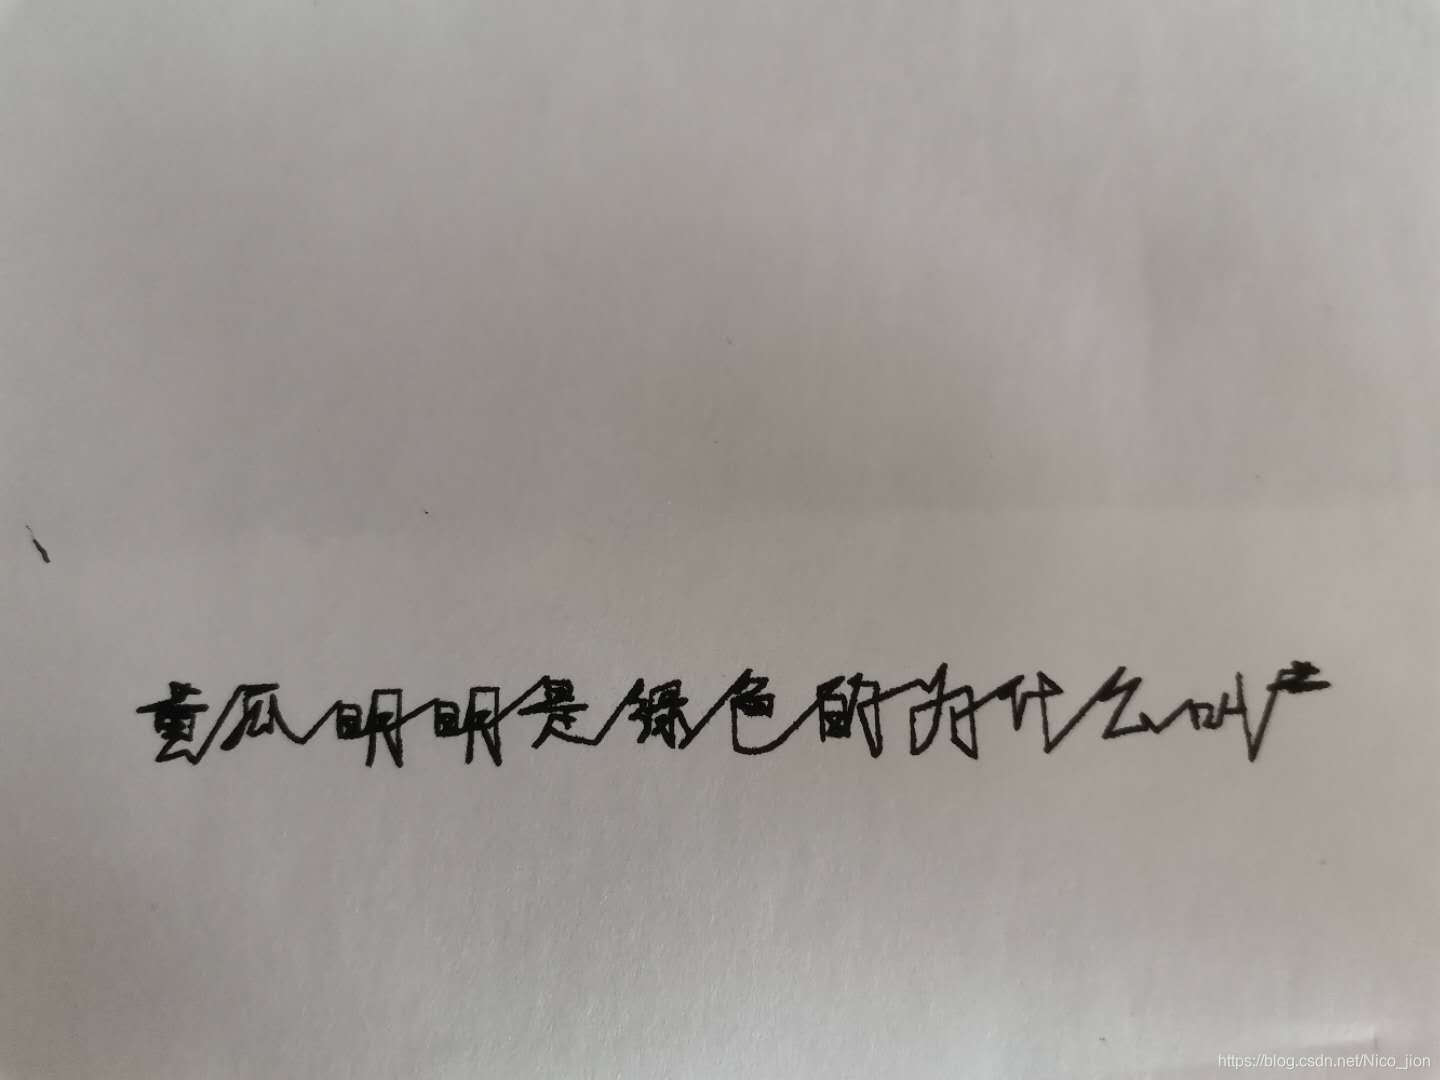 黄瓜明明是绿色的为什么叫
https://blog.csdn.net/Nico_jion